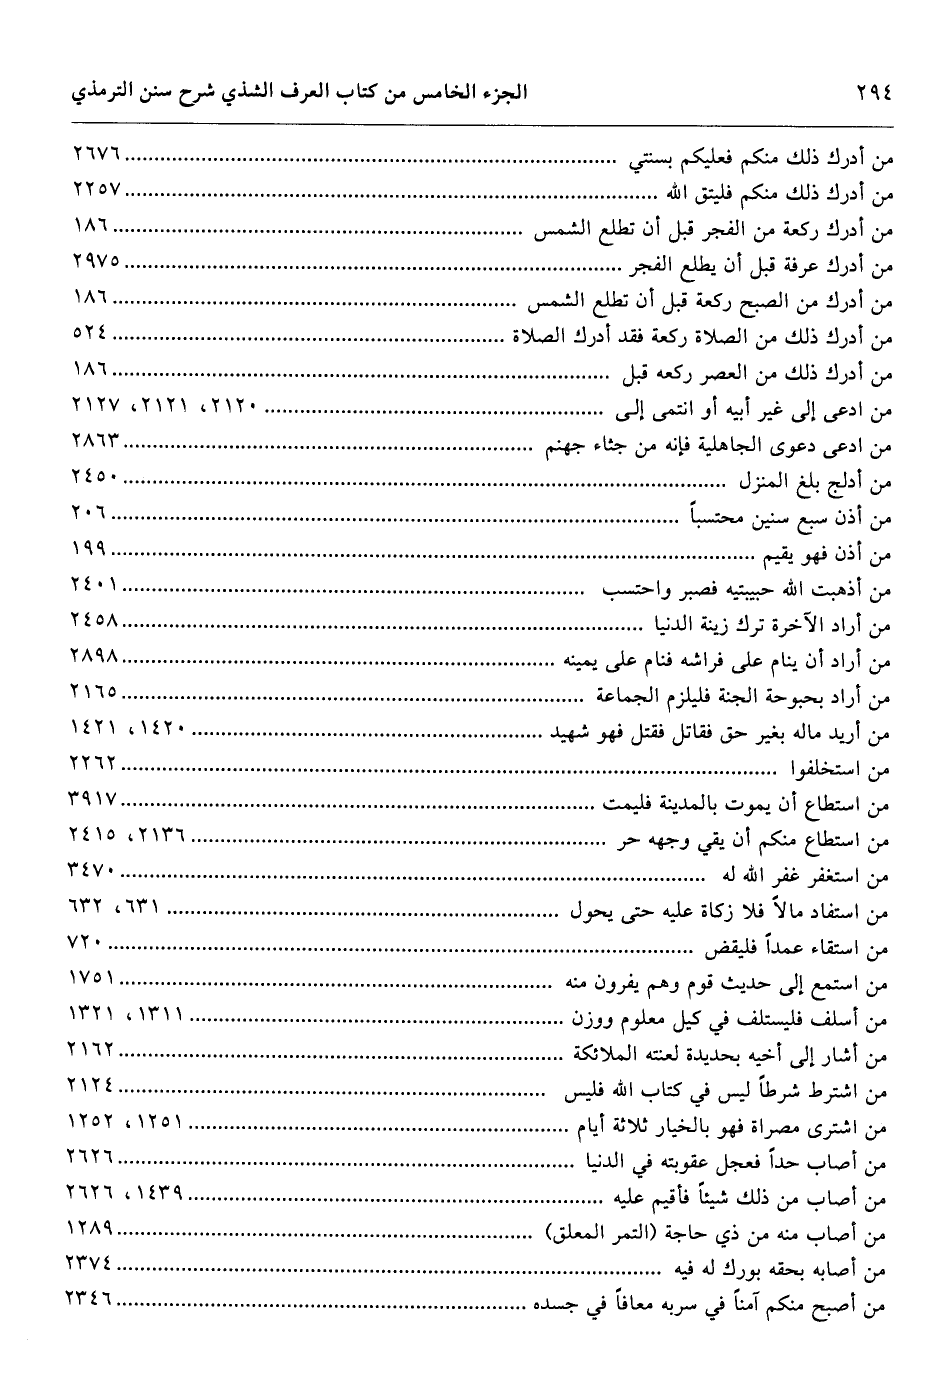 ٢٩٤ الجزء الخامس من كتاب العرف الشذي شرح سنن الترمذي
من أدرك ذلك منكم فعليكم بسنتي ........ ٢٦٧٦
من أدرك ذلك منكم فليتق الله ........ ٢٢٥٧
من أدرك ركعة من الفجر قبل أن تطلع الشمس ........ ١٨٦
من أدرك عرفة قبل أن يطلع الفجر ........ ٢٩٧٥
من أدرك من الصبح ركعة قبل أن تطلع الشمس ........ ١٨٦
من أدرك ذلك من الصلاة ركعة فقد أدرك الصلاة ........ ٥٢٤
من أدرك ذلك من العصر ركعه قبل ........ ١٨٦
من ادعى إلى غير أبيه أو انتمى إلى ........ ٢١٢٠، ٢١٢١، ٢١٢٧
من ادعى دعوى الجاهلية فإنه من جثاء جهنم ........ ٢٨٦٣
من أدلج بلغ المنزل ........ ٢٤٥٠
من أذن سبع سنين محتسباً ........ ٢٠٦
من أذن فهو يقيم ........ ١٩٩
من أذهبت الله حبيبتيه فصبر واحتسب ........ ٢٤٠١
من أراد الآخرة ترك زينة الدنيا ........ ٢٤٥٨
من أراد أن ينام على فراشه فنام على يمينه ........ ٢٨٩٨
من أراد بحبوحة الجنة فليلزم الجماعة ........ ٢١٦٥
من أريد ماله بغير حق فقاتل فقتل فهو شهيد ........ ١٤٢٠، ١٤٢١
من استخلفوا ........ ٢٢٦٢
من استطاع أن يموت بالمدينة فليمت ........ ٣٩١٧
من استطاع منكم أن يقي وجهه حر ........ ٢١٣٦، ٢٤١٥
من استغفر غفر الله له ........ ٣٤٧٠
من استفاد مالاً فلا زكاة عليه حتى يحول ........ ٦٣١، ٦٣٢
من استقاء عمداً فليقض ........ ٧٢٠
من استمع إلى حديث قوم وهم يفرون منه ........ ١٧٥١
من أسلف فليستلف في كيل معلوم ووزن ........ ١٣١١، ١٣٢١
من أشار إلى أخيه بحديدة لعنته الملائكة ........ ٢١٦٢
من اشترط شرطاً ليس في كتاب الله فليس ........ ٢١٢٤
من اشترى مصراة فهو بالخيار ثلاثة أيام ........ ١٢٥١، ١٢٥٢
من أصاب حداً فعجل عقوبته في الدنيا ........ ٢٦٢٦
من أصاب من ذلك شيئاً فأقيم عليه ........ ١٤٣٩، ٢٦٢٦
من أصاب منه من ذي حاجة (التمر المعلق) ........ ١٢٨٩
من أصابه بحقه بورك له فيه ........ ٢٣٧٤
من أصبح منكم آمناً في سربه معافاً في جسده ........ ٢٣٤٦